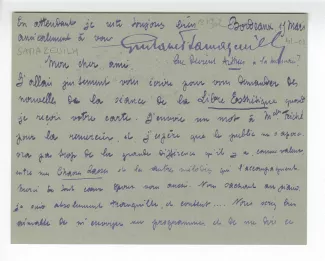 En attendant je reste toujours bien Bordeaux 17 Mars
amicalement à vous
Gustave Samazeuilh
SAMAZEUILH
Mon cher ami.
J'allais justement vous écrire pour vous demander des
nouvelles de la séance de la Libre Esthétique quand
je reçois votre carte. J'envoie un mot à Melle
pour la remercier et j'espère que le public ne s'aperce-
vra pas trop de la grande différence qu'il y a comme valeur
entre ma Chanson et les autres mélodies qui l'accompagnent.
Merci de tout cœur pour nous aussi. Vous sachant au piano
je suis absolument tranquille et content.... Vous serez bien
aimable de m'envoyer un programme et de me dire ce